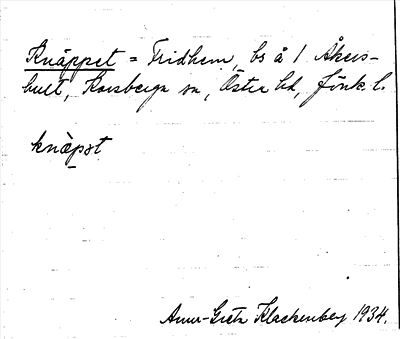 Knäppet = Fridhem, bs å 1 Åkers-
hult, Korsberga sn, Östra hd, Jönk. l.
knäpst
Anna-Greta Klackenberg 1934.